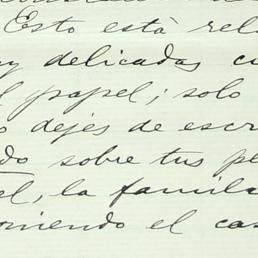 Esto està rela
y delicadas cu
l papel; solo
o dejes de escri
do sobre tus pe
el, la famili
oniendo el cas